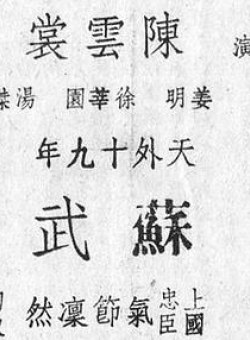 演
陳雲裳
姜明 徐莘園 湯傑
天外十九年
蘇武
上國忠臣 氣節凜然